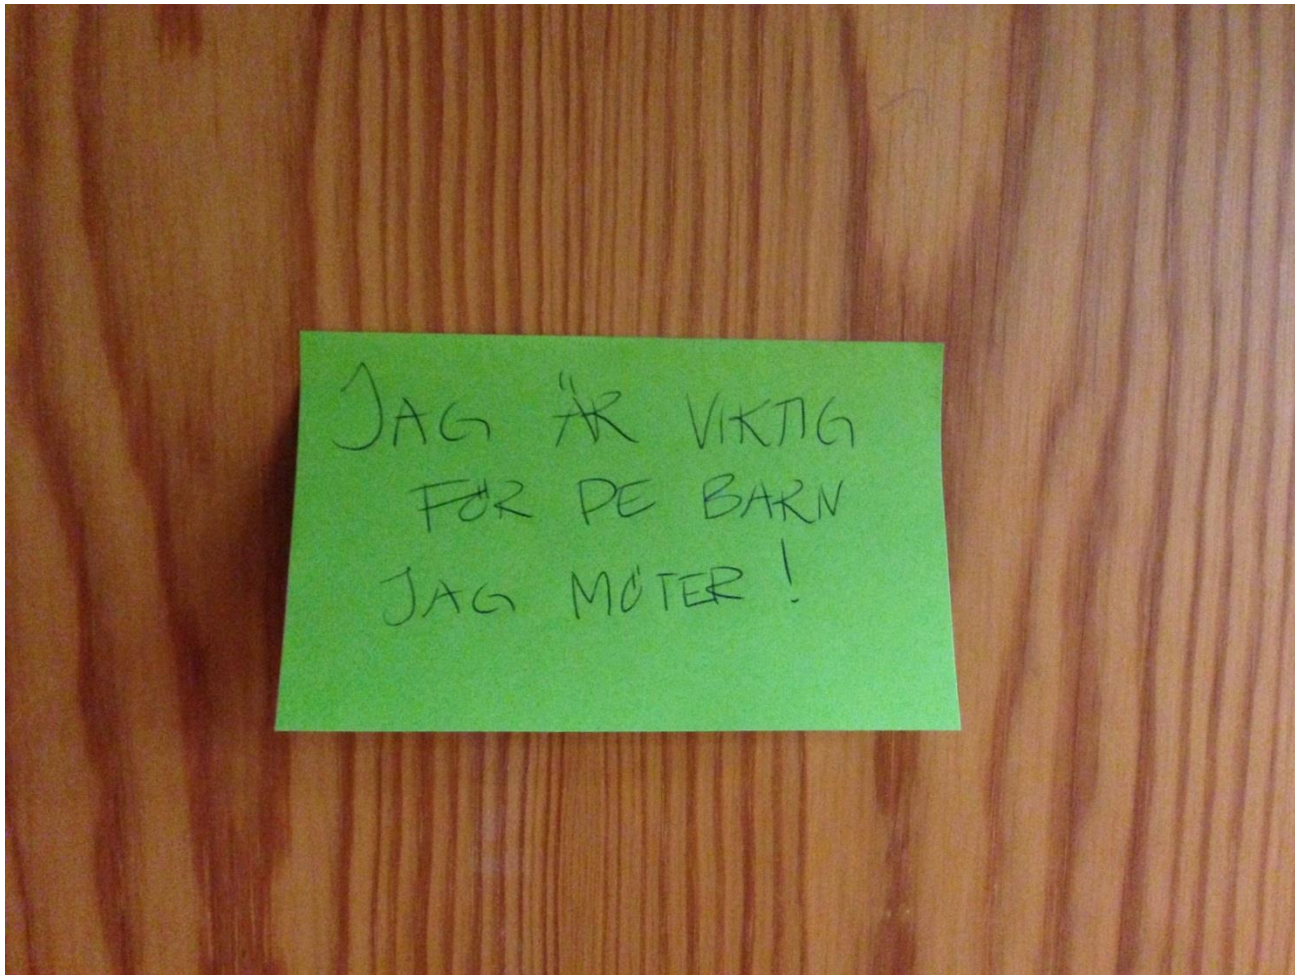 JAG ÄR VIKTIG
FÖR DE BARN
JAG MÖTER!